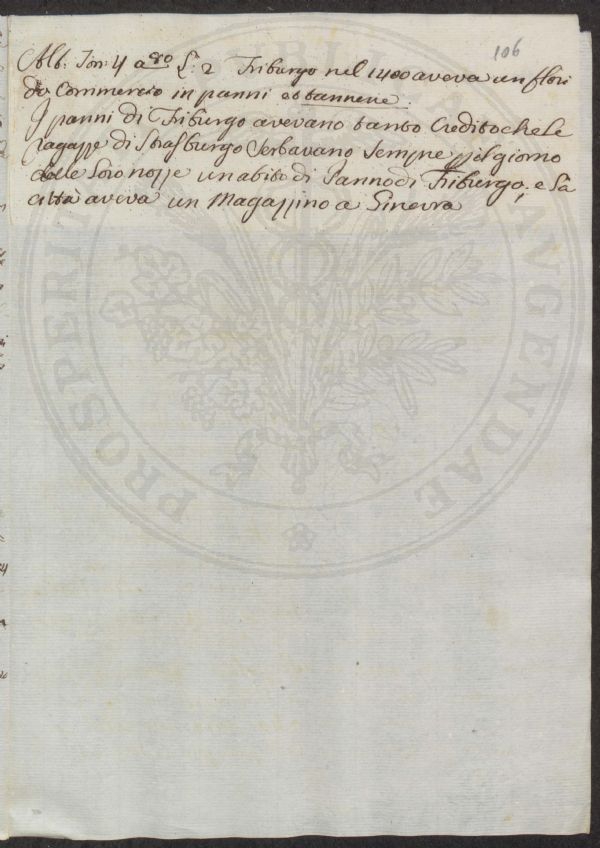 106
Alb: Tom 4 a.ro L: 2 Friburgo nel 1400 aveva un flori
do Commercio in panni et tannerie.
I panni di Friburgo avevano tanto Credito che le
ragazze di Strasburgo Serbavano Sempre pel giorno
delle Loro nozze un abito di Panno di Friburgo; e La
città aveva un Magazzino a Ginevra
PROSPERITATI PUBLICAE AUGENDAE